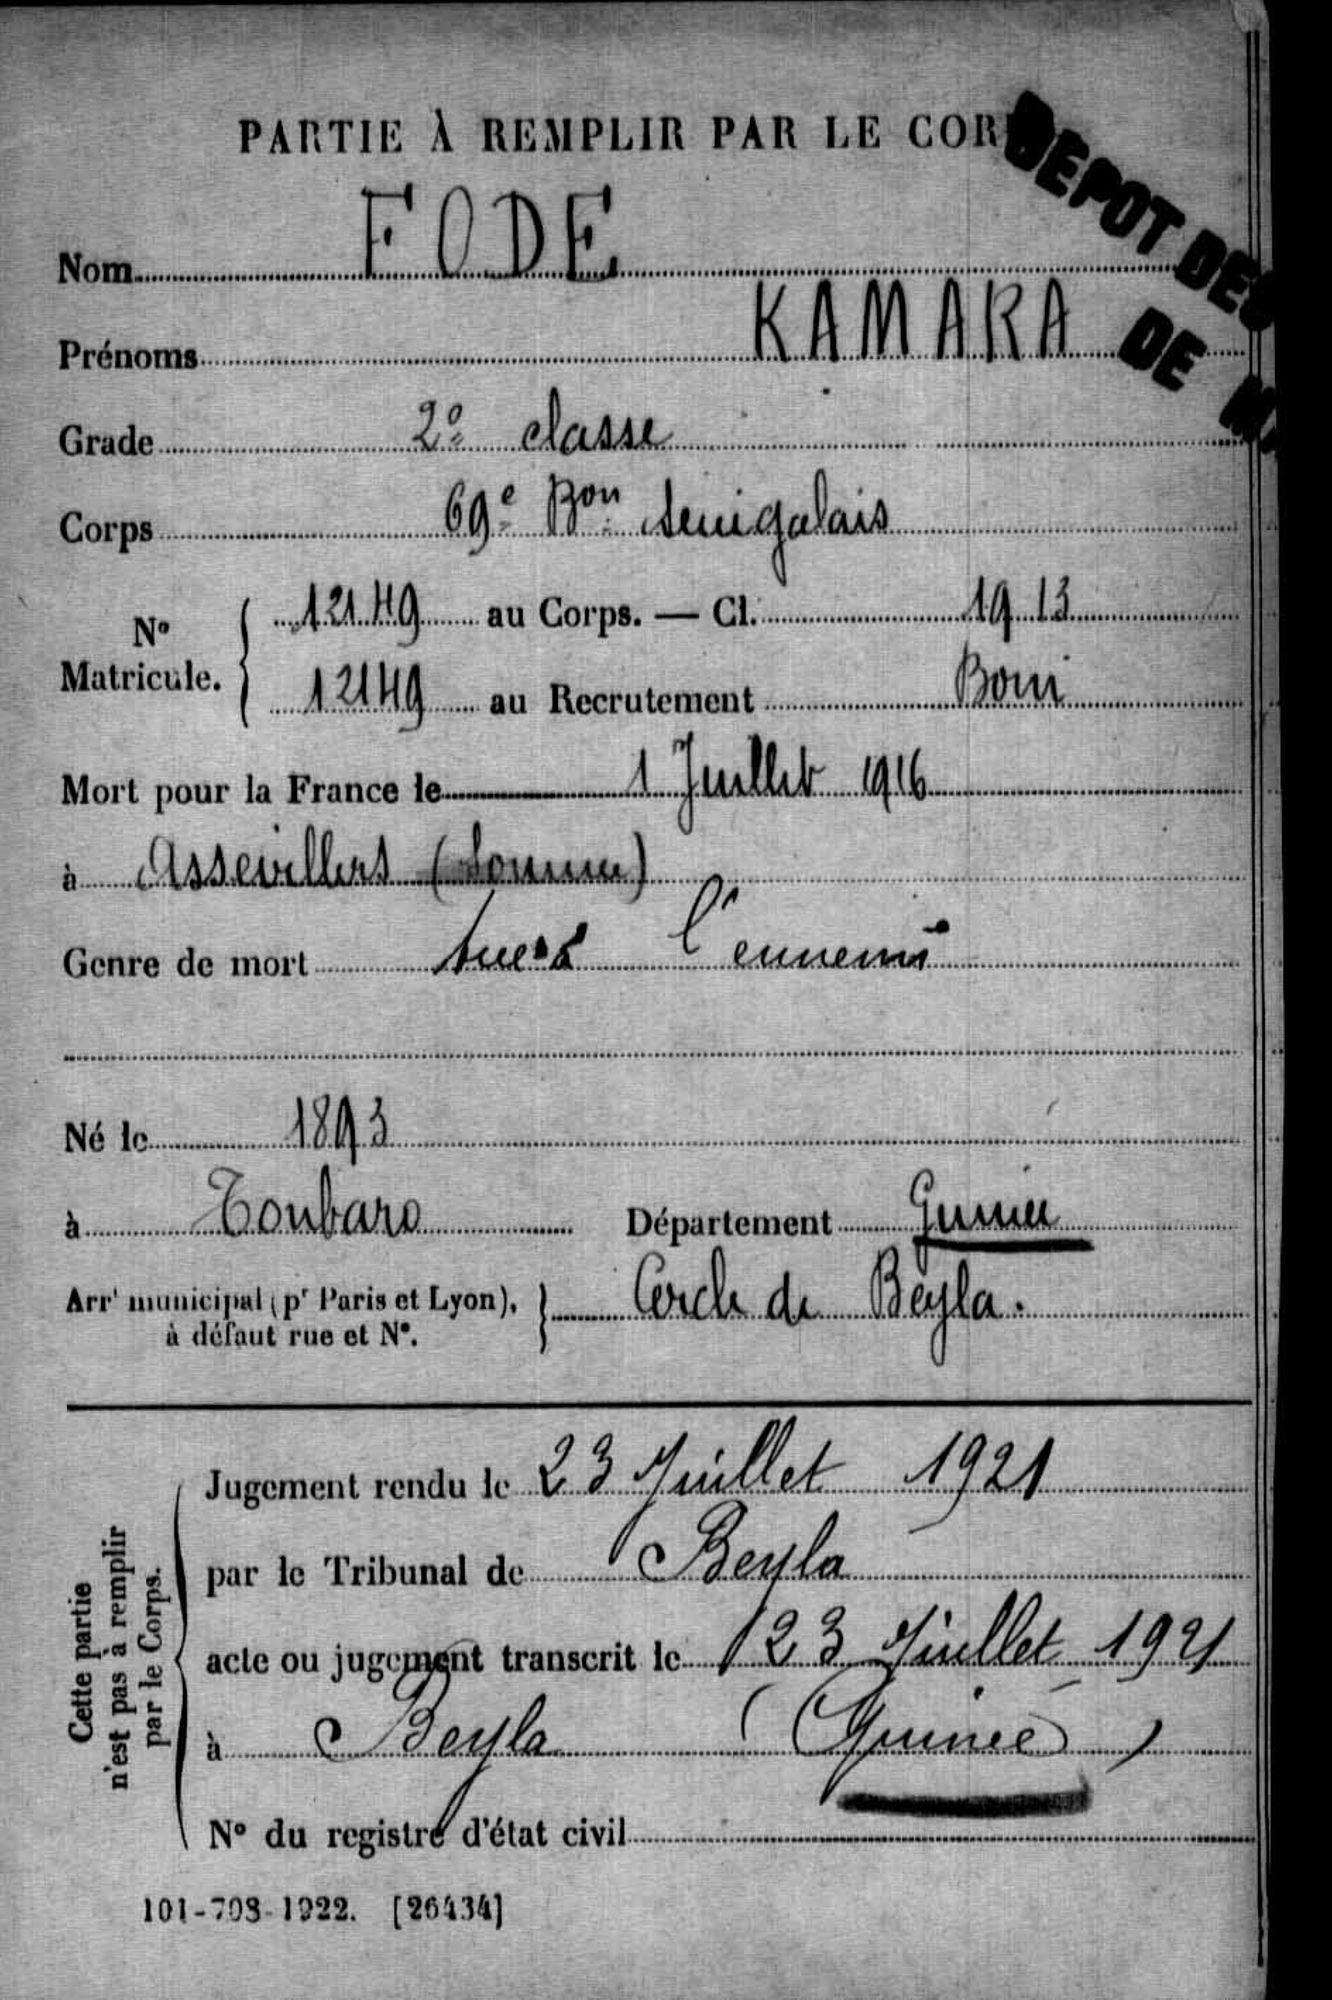 PARTIE À REMPLIR PAR LE COR
DEPOT DES
DE
Nom FODE
Prénoms KAMARA
Grade 2e classe
Corps 69e Bon Senegalais
No Matricule. { 12149 au Corps. — Cl. 1913
12149 au Recrutement Boni
Mort pour la France le 1 Juillet 1916
à Assevillers (Somme)
Genre de mort Tué à l'ennemi
Né le 1893
à Toubaro Département Guinée
Arrt municipal (pr Paris et Lyon), à défaut rue et No. } Cercle de Beyla.
Cette partie n'est pas à remplir par le Corps.
Jugement rendu le 23 Juillet 1921
par le Tribunal de Beyla
acte ou jugement transcrit le 23 Juillet 1921
à Beyla (Guinée)
No du registre d'état civil
101-708-1922. [26434]